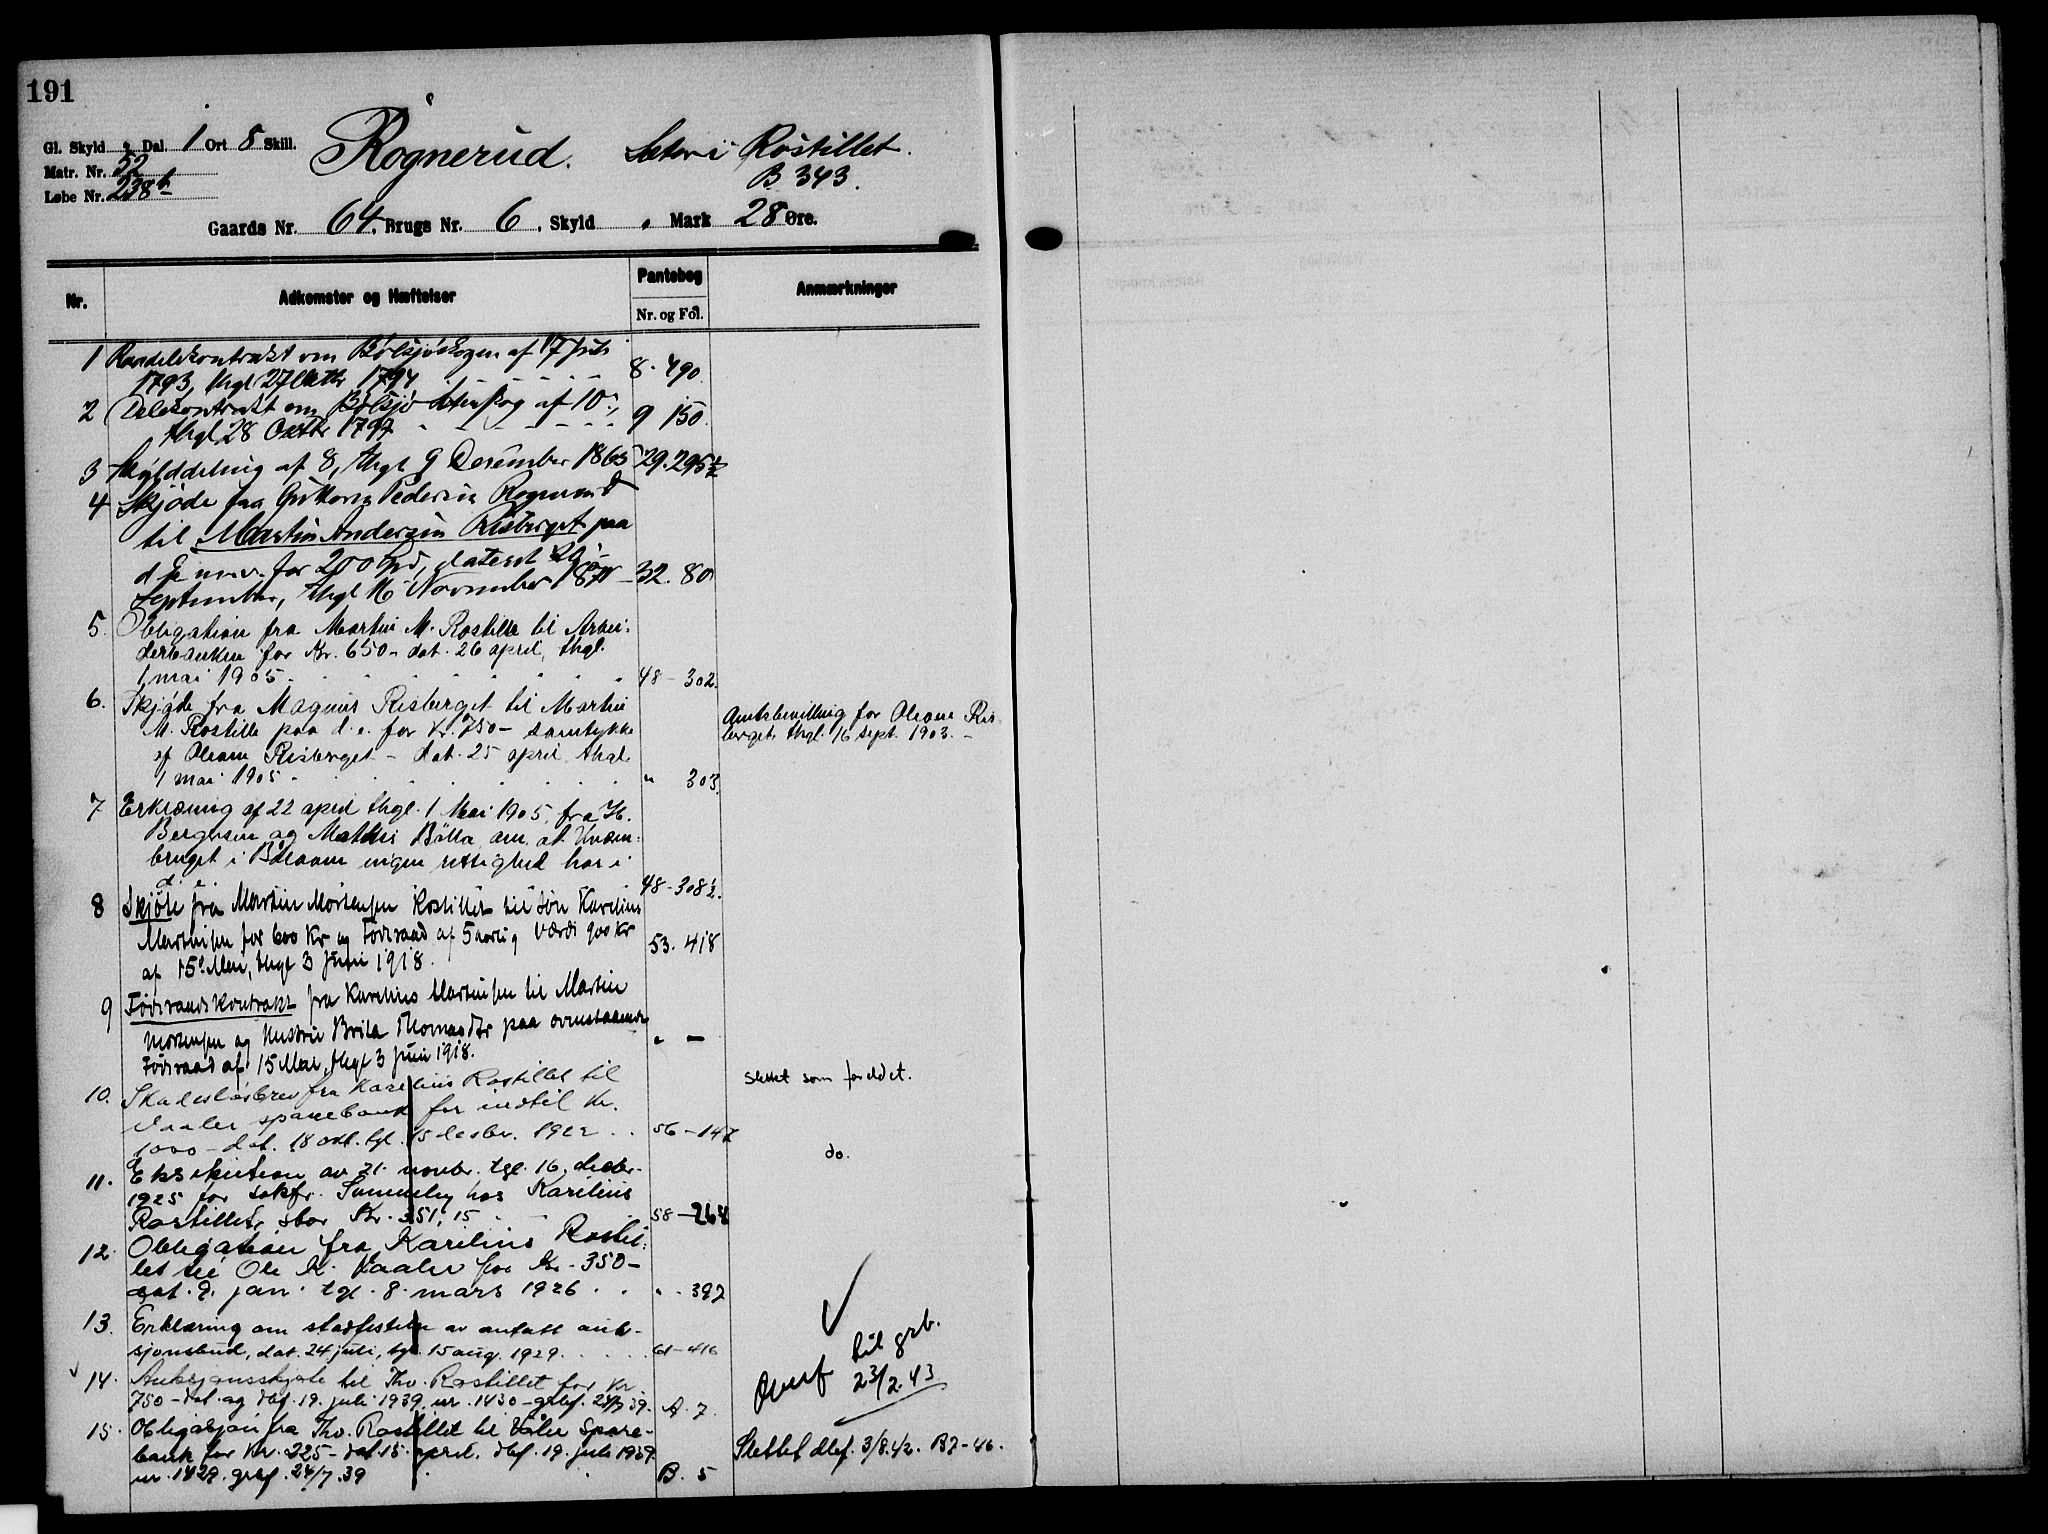 191
Gl. Skyld " Dal. 1 Ort 8 Skill.
Matr. Nr. 52
Løbe Nr. 238 b
Rognerud. Rostillet.
B 343.
Gaards Nr. 64, Brugs Nr. 6, Skyld " Mark 28 Øre.
Nr.
Adkomster og Hæftelser
Pantebog
Nr. og Fol.
Anmærkninger
1 kontrakt om Bølsjøskogen af 17 Juli
1793, thgl 27 Oktbr 1794 8. 490.
2 Delekontrakt om Bølsjø af 10,
thgl 28 Oktbr 1797 9 150.
3 Skylddeling af 8, thgl 9 December 1865 29. 295½
4 Skjøde fra Guttorm Pedersen Rognerud
til Martin Andersen Risberget paa
d E for 200 Spd, dateret
September, thgl 16 November 187 32. 80
5. Obligation fra Martin M. Rostille til Arbei-
derbanken for Kr. 650 - dat. 26 april, thgl.
1 mai 1905. 48 - 302.
6. Skjøde fra Magnus Risberget til Martin
M. Rostille paa d. e. for Kr. 750 - samtykke
af Oleane Risberget - dat. 25 april thgl.
1 mai 1905 " 303.
Amtsbevilling for Oleane Ris-
berget, thgl. 16 sept. 1903. -
7 Erklæring af 22 april thgl. 1 Mai 1905, fra H.
Bergersen og Mathis Bölla om at
bruget i ingen rettighed har i
d. e. 48 - 308½.
8 Skjøte fra Martin Mortensen Rostillet til søn Karelius
Martinsen for 600 Kr og Föderaad af 5 aarlig Værdi 900 Kr
af 15 Mai, thgl 3 Juni 1918. 53. 418
9 Föderaadskontrakt fra Karelius Martinsen til Martin
Mortensen og Hustru Brita Thomasdtr paa ovenstaaende
Föderaad af 15 Mai, thgl 3 Juni 1918. " —
10. Skadesløsbrev fra Karelius Rostillet til
Vaaler sparebank for indtil Kr.
1000 - dat. 18 okt. tgl. 15 desbr. 1922 56 - 147
Slettet som foreldet.
11. Eksekution av 21. novbr. tgl. 16. desbr.
1925 for sakfr. hos Karelius
Rostillet, stor Kr. 351,15 58 - 264
do.
12. Obligation fra Karelius Rostil-
let til Ole K. Vaaler for Kr. 350 -
dat. 9. jan. tgl. 8. mars 1926 " 392
13. Erklæring om stadfestelse av antatt auk-
sjonsbud, dat. 24 juli, tgl. 15 aug. 1929. 61 - 416
14. Auksjonsskjøte til Tho. Rostillet for Kr
750 - dat. og dbf. 19. juli 1939. nr. 1430 - grbf. 24/7 39. A. 7.
Overf til grb.
23/2.43
15. Obligasjon fra Tho. Rostillet til Våler Spare-
bank for Kr. 225 - dat. 15. april, dbf. 19. juli 1939.
nr. 1429. grbf. 24/7.39 B. 5
Slettet dbf. 3/8.42. B7-46.